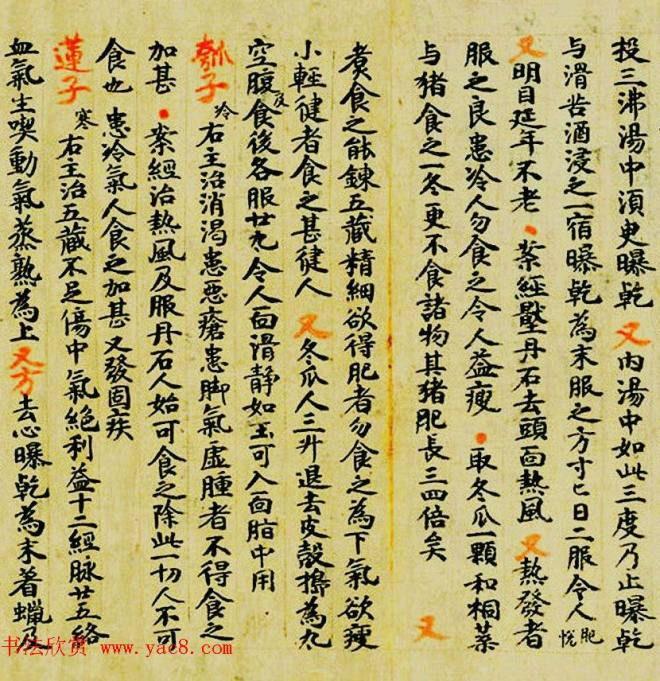 投三沸湯中湏臾曝乾 又内湯中如此三度乃止曝乾
与清苦酒浸之一宿曝乾為末服之方寸匕日二服令人肥悅
又明目延年不老 案經壓丹石去頭面熱風 又熱發者
服之良患冷人勿食之令人益瘦 取冬瓜一顆和桐葉
与猪食之一冬更不食諸物其猪肥長三四倍矣 又
煮食之能鍊五藏精細欲得肥者勿食之為下氣欲瘦
小輕徤者食之甚徤人 又冬瓜人三升退去皮殼擣為丸
空腹及食後各服廿丸令人面滑静如玉可入面脂中用
瓠子 冷 右主治消渴患惡瘡患脚氣虛腫者不得食之
加甚 案經治熱風及服丹石人始可食之除此一切人不可
食也 患冷氣人食之加甚又發固疾
蓮子 寒 右主治五藏不足傷中氣絶利益十二經脉廿五絡
血氣生喫動氣蒸熟為上 又方 去心曝乾為末著蠟及
书法欣赏 www.yac8.com